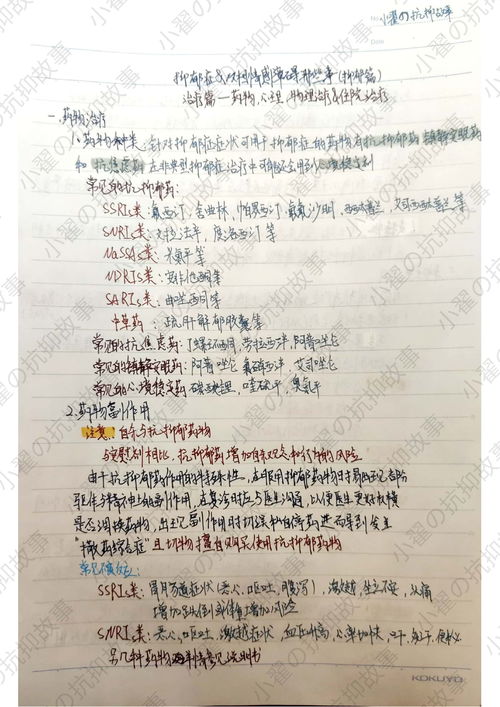 小翟の抗抑故事
No.
Date
抑郁症&双相情感障碍那些事(抑郁篇)
治疗篇—药物,心理,物理治疗&住院治疗
一.药物治疗
1.药物种类:针对抑郁症症状可用于抑郁症的药物有抗抑郁药 镇静安眠药
和 抗焦虑药 在非典型抑郁症治疗中可能还会用到心境稳定剂
常见的抗抑郁药:
SSRIs类:氟西汀,舍曲林,帕罗西汀,氟伏沙明,西酞普兰,艾司西酞普兰等
SNRIs类:文拉法辛,度洛西汀等
NaSSAs类:米氮平等
NDRIs类:安非他酮等
SARIs类:曲唑酮等
中草药:疏肝解郁胶囊等
常见的抗焦虑药:丁螺环酮,劳拉西泮,阿普唑仑
常见的镇静安眠药:阿普唑仑,氯硝西泮,艾司唑仑
常见的心境稳定药:碳酸锂,喹硫平,奥氮平
2.药物副作用
注意:自杀与抗抑郁药物
与安慰剂相比,抗抑郁药增加自杀观念和行为的风险
由于抗抑郁药作用的特殊性,在服用抑郁药物时易
是否调换药物,出现副作用时切误擅自停药进而导致会
"撤药综合症"且切勿擅自购买使用抗抑郁药物
常见不良反应:
SSRIs类:胃肠道症状(恶心,呕吐,腹泻),激越,坐立不安,头痛
增加跌倒或
SNRIs类:恶心,呕吐,激越症状,血压升高,心率加快,口干,便秘
另几种药物详情参见说明书
KOKUYO